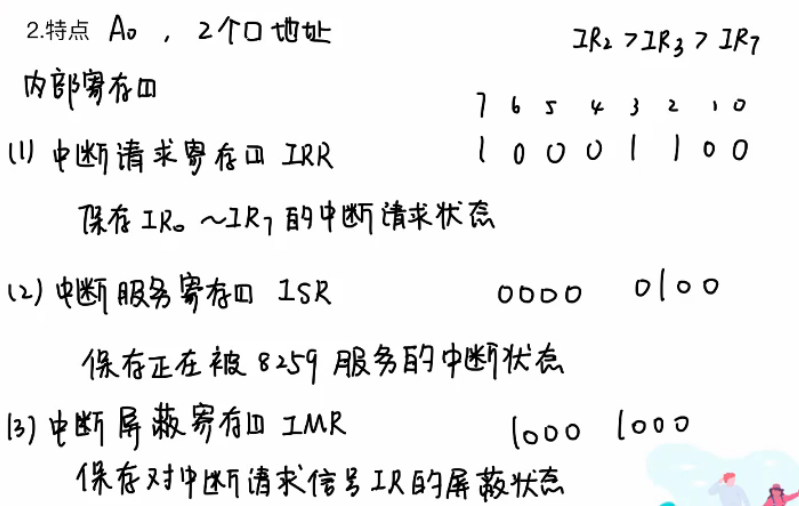 2.特点 A₀ , 2个口地址
IR₂ > IR₃ > IR₇
内部寄存口
7 6 5 4 3 2 1 0
(1) 中断请求寄存口 IRR 1 0 0 0 1 1 0 0
保存 IR₀ ～IR₇ 的中断请求状态
(2) 中断服务寄存口 ISR 0000 0100
保存正在被 8259 服务的中断状态
(3) 中断屏蔽寄存口 IMR 1000 1000
保存对中断请求信号 IR 的屏蔽状态